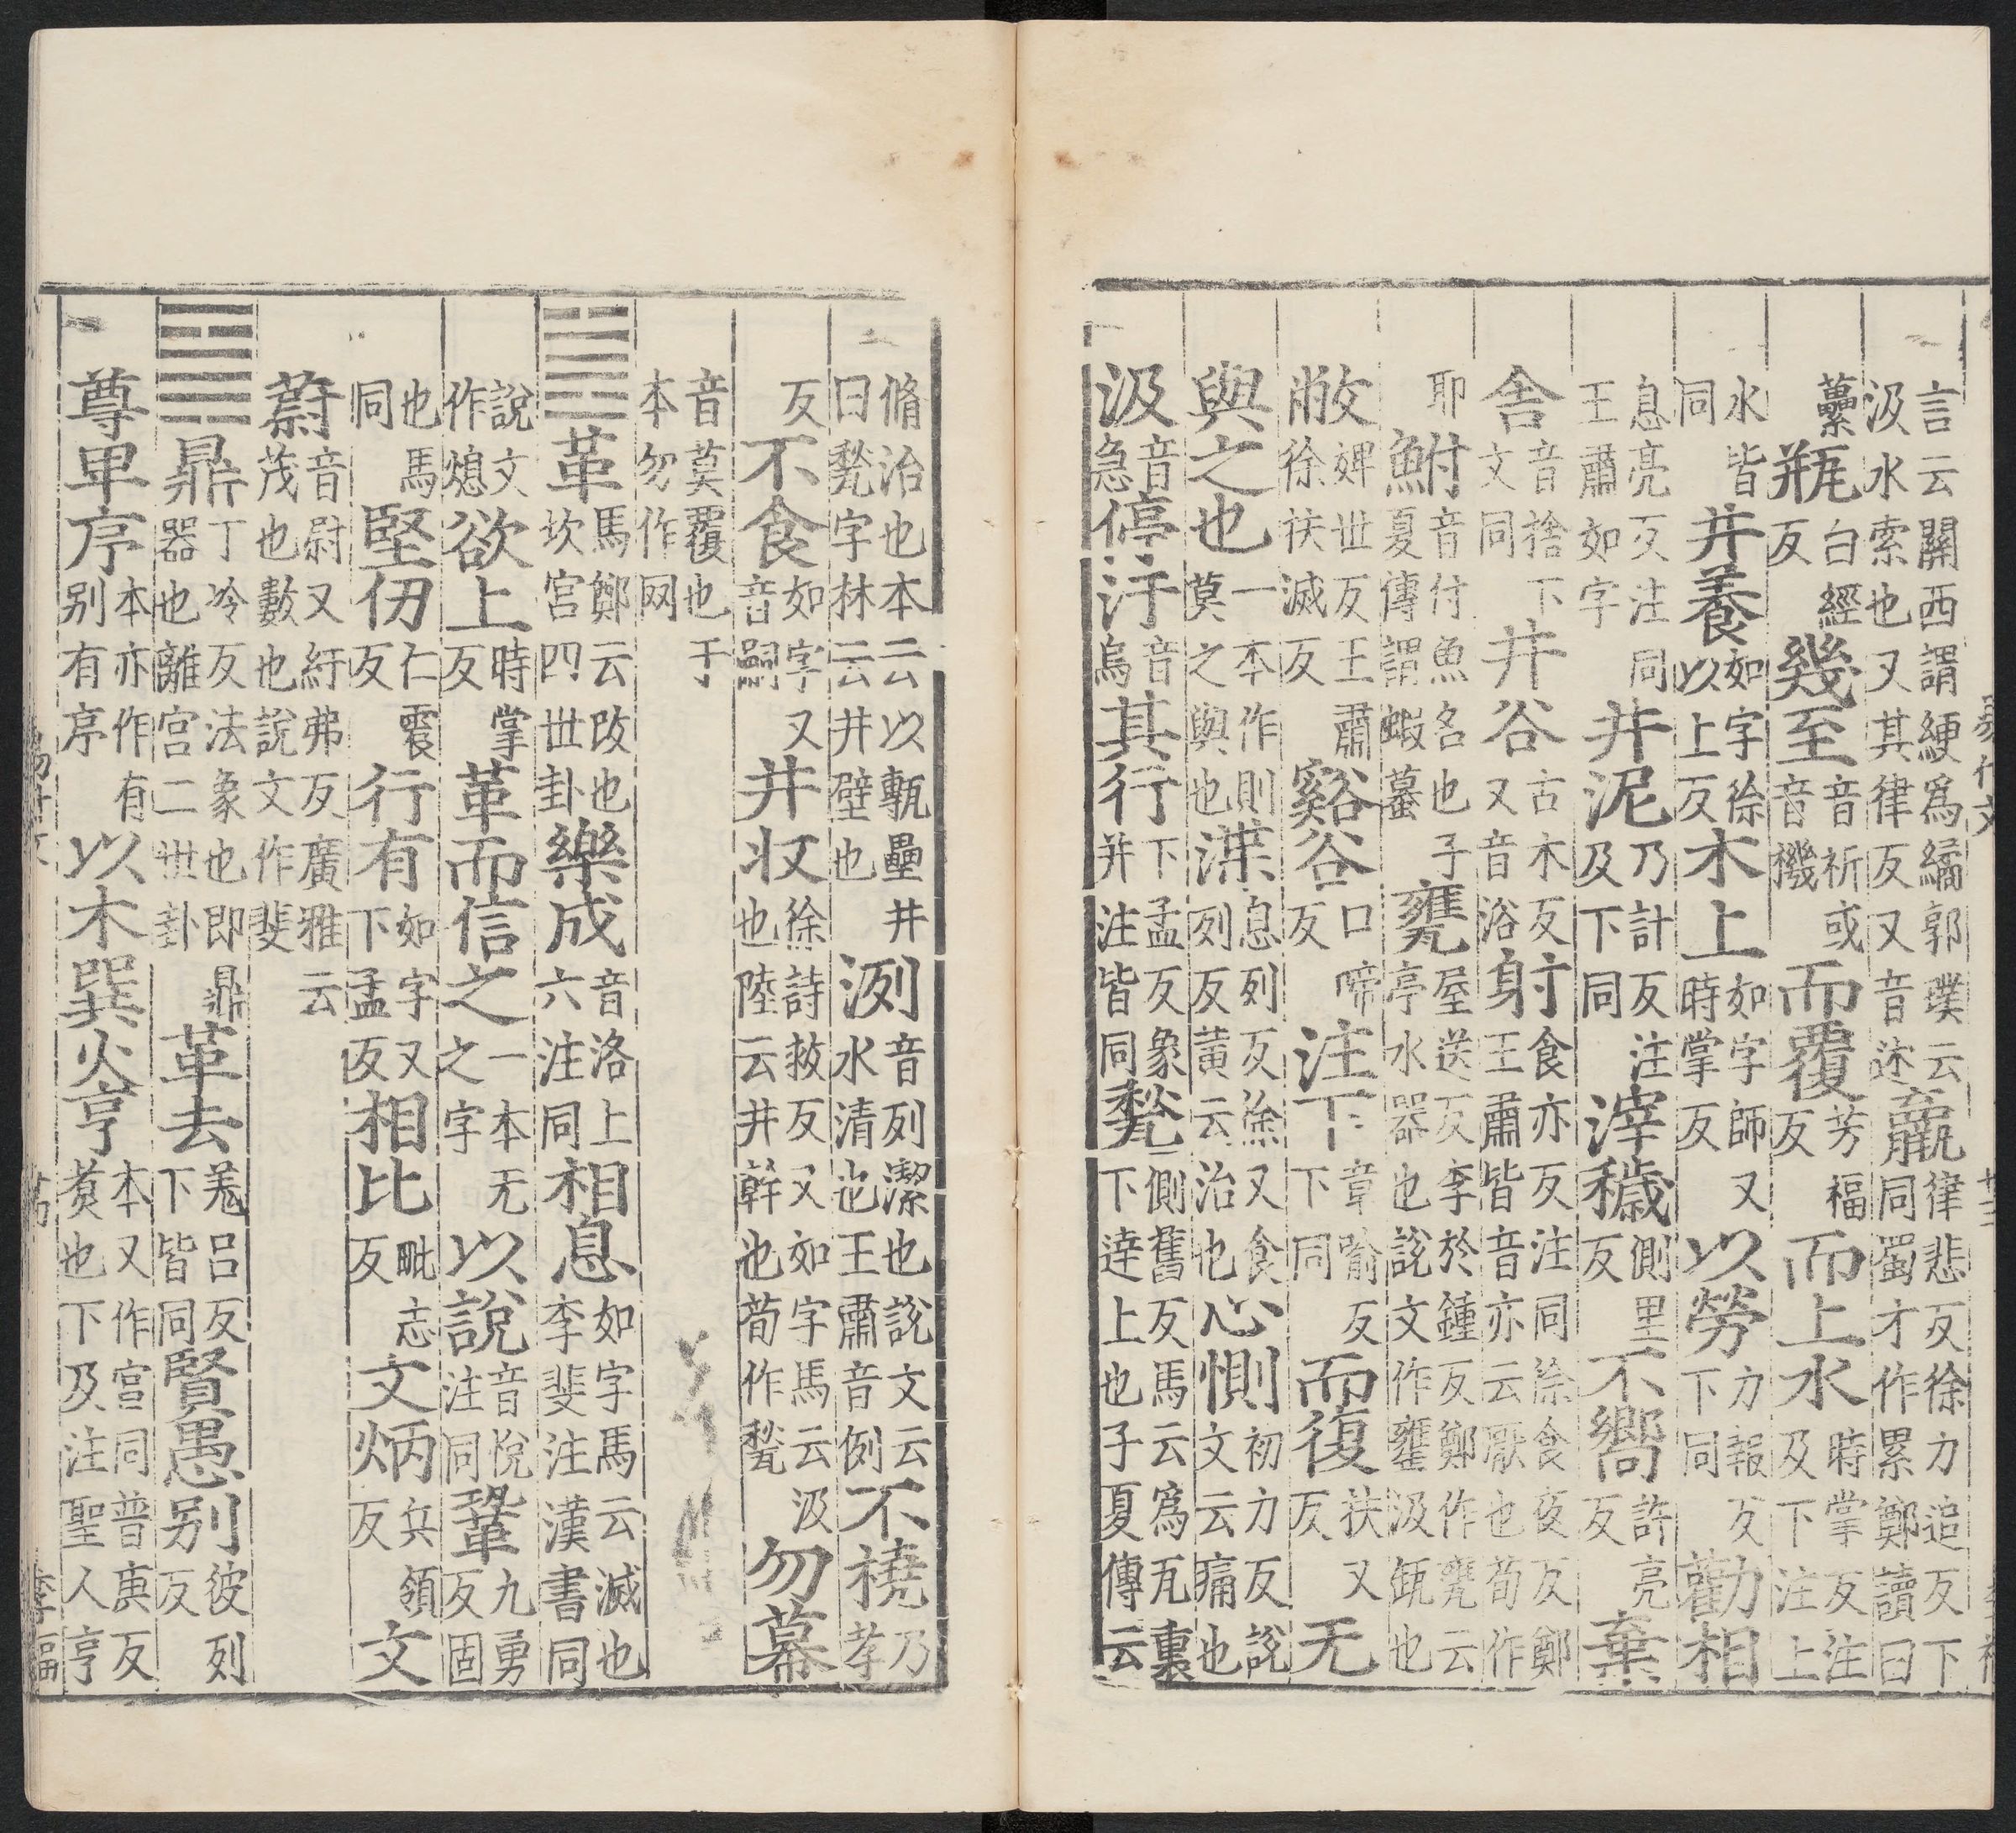 言云關西謂綆爲繘郭璞云汲水索也又其律反又音述羸律悲反徐力追反下同蜀才作累鄭讀曰
虆瓶白經反幾至音祈或音機而覆芳福反而上水時掌反注及下注上
水皆同井養如字徐以上反木上如字師又時掌反以勞力報反下同勸相
息亮反注同王肅如字井泥乃計反注及下同滓穢側里反不嚮許亮反棄
舍音捨下文同井谷古木反又音浴射食亦反注同徐食夜反鄭王肅皆音亦云厭也荀作
耶鮒音付魚名也子夏傳謂蝦蟇甕屋送反李於鍾反鄭作甕云亭水器也說文作罋汲缾也
敝婢世反王肅徐扶滅反谿谷口啼反注下章喻反下同而復扶又反无
與之也一本作則莫之與也渫息列反徐又食列反黃云治也心惻初力反說文云痛也
汲音急停汙音烏其行下孟反象并注皆同甃側舊反馬云爲瓦裏下達上也子夏傳云
脩治也本云以甎壘井曰甃字林云井壁也洌音列潔也說文云水清也王肅音例不橈乃孝
反不食如字又音嗣井收徐詩救反又如字馬云汲也陸云井幹也荀作甃勿幕
音莫覆也于本勿作网
䷰革馬鄭云改也坎宮四世卦樂成音洛上六注同相息如字馬云滅也李斐注漢書同
說文作熄欲上時掌反革而信之一本无之字以說音悅注同鞏九勇反固
也馬同堅仞仁震反行有如字又下孟反相比毗志反文炳兵領反文
蔚音尉又紆弗反廣雅云茂也數也說文作斐
䷱鼎丁冷反法象也即鼎器也離宮二世卦革去羌呂反下皆同賢愚別彼列反
尊卑序本亦作有別有序以木巽火亨本又作亯同普庚反煑也下及注聖人亨